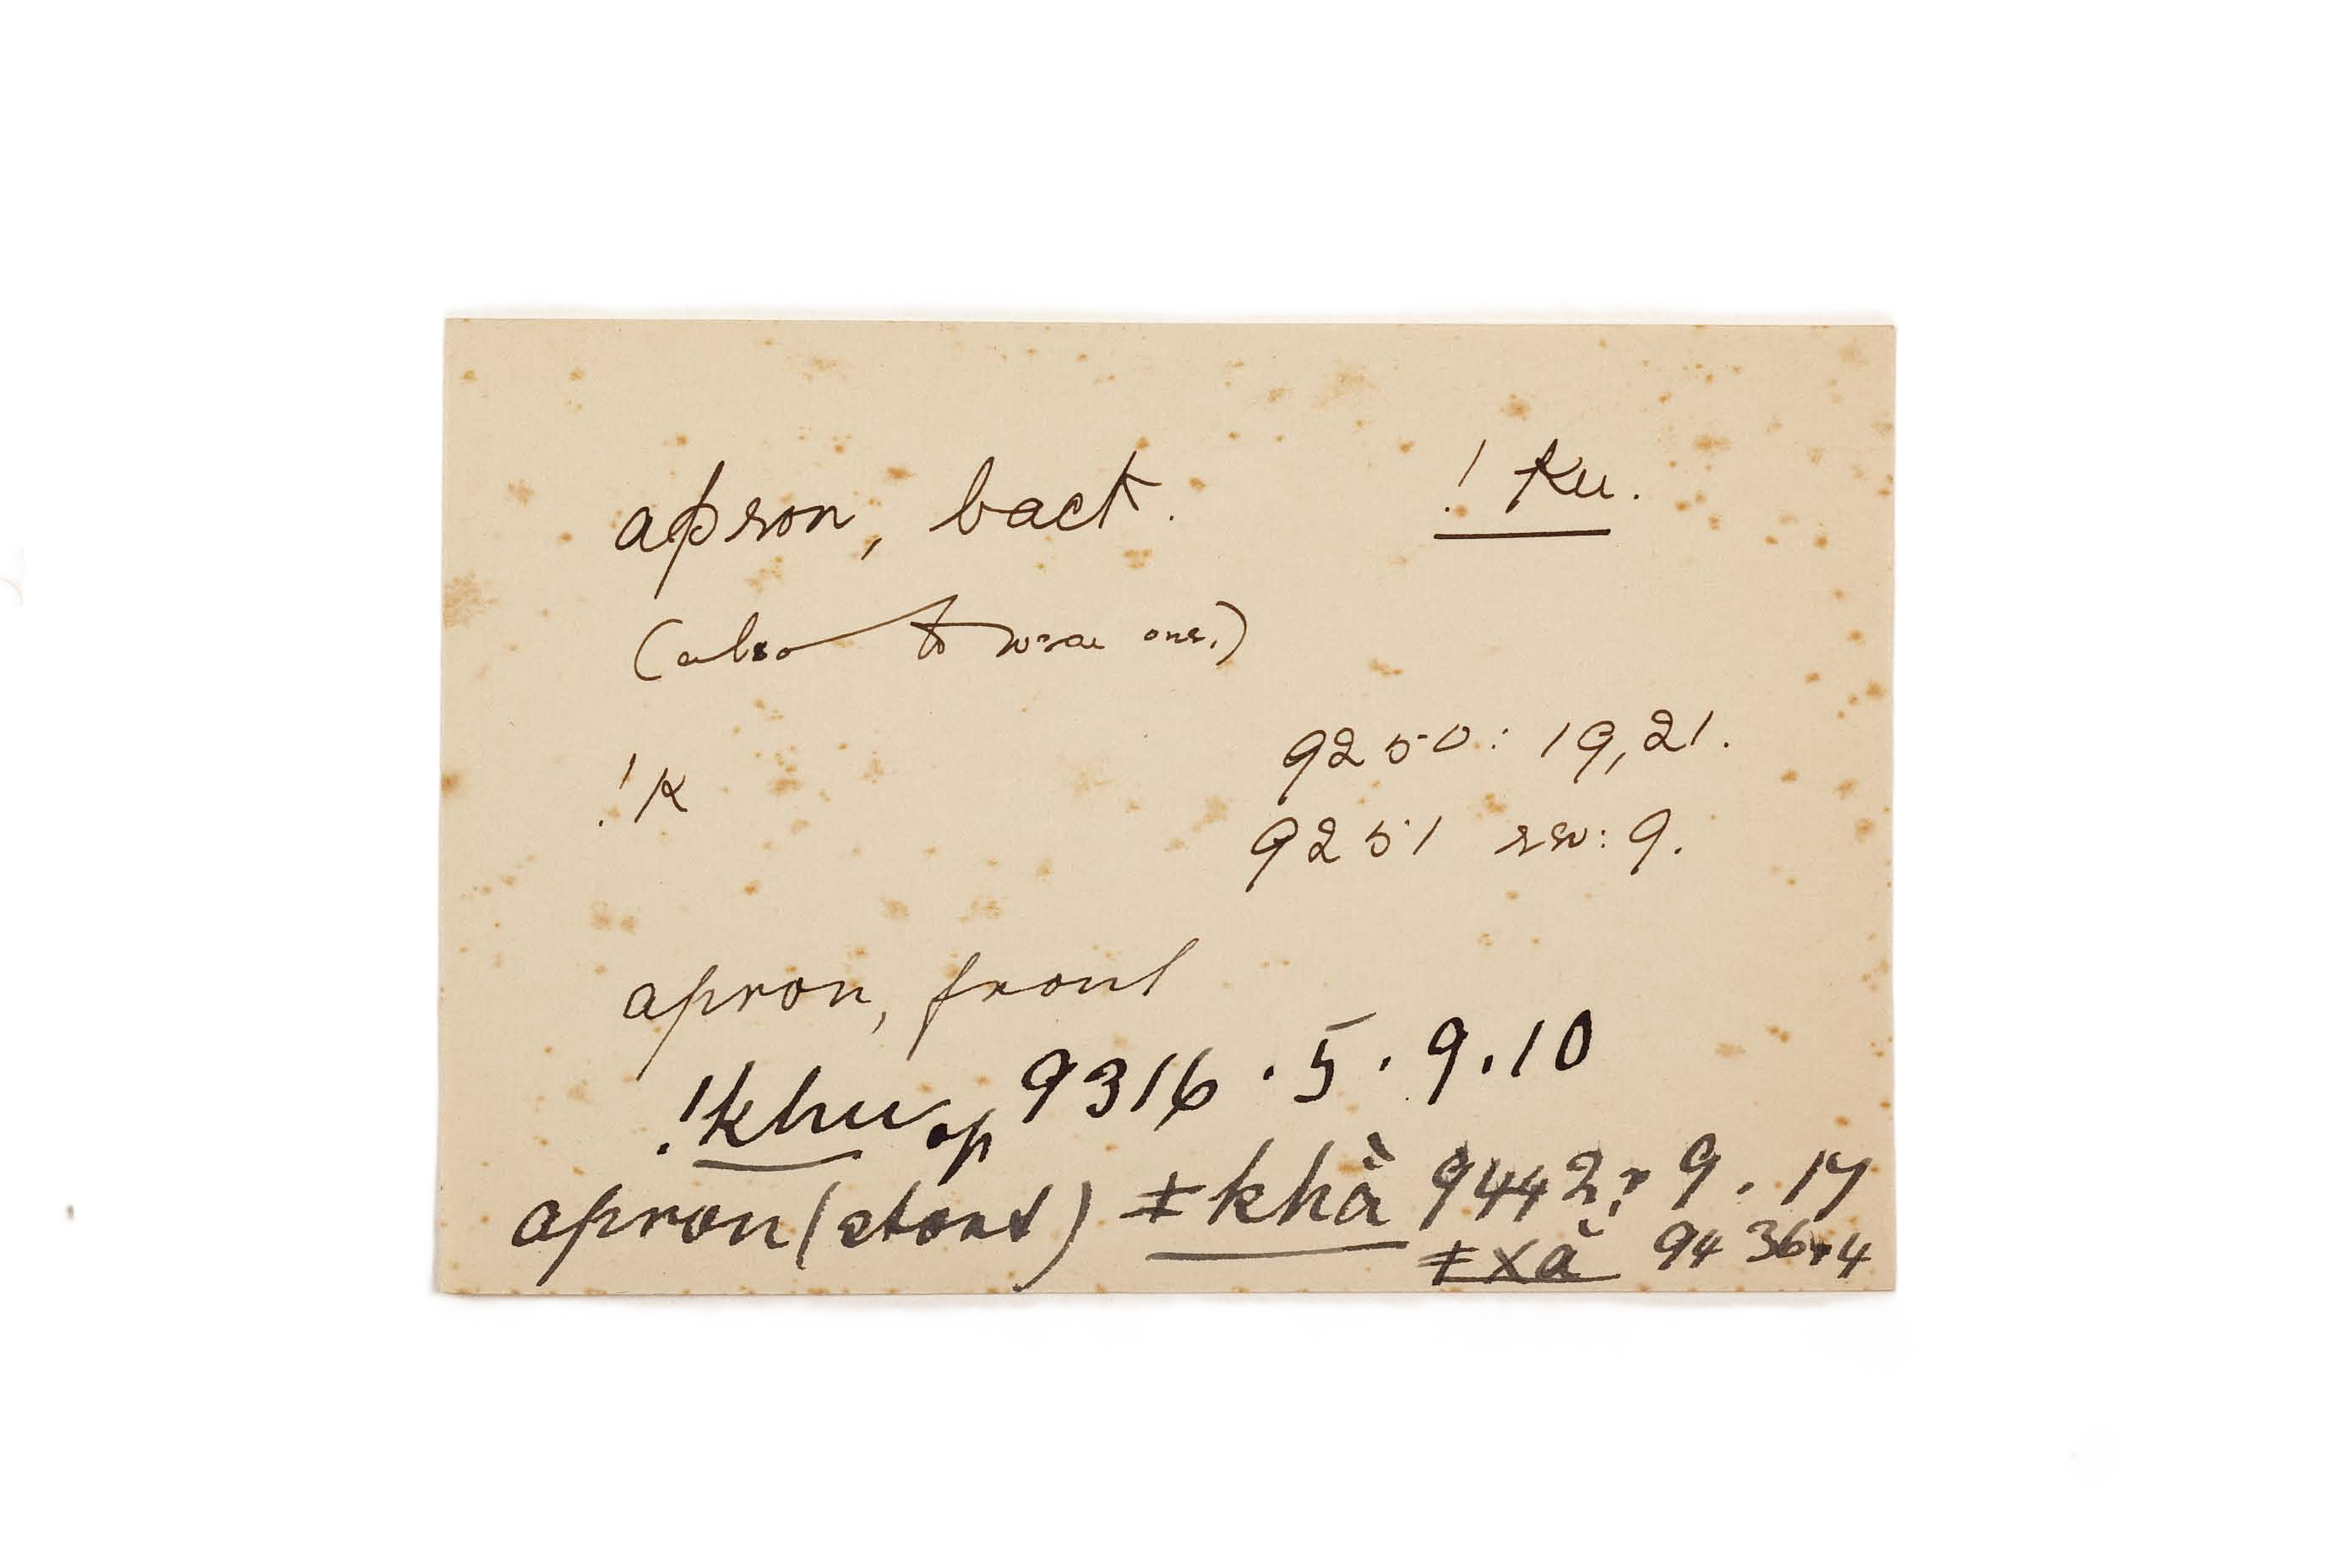 apron, back. ! Ku.
(also to wear one.)
9250: 19,21.
!K
9251 rev: 9.
apron, front
!khu op 9316 . 5 . 9 . 10
apron (short) ǂkhȁ 9442: 9 . 17
ǂxȁ 9436.4